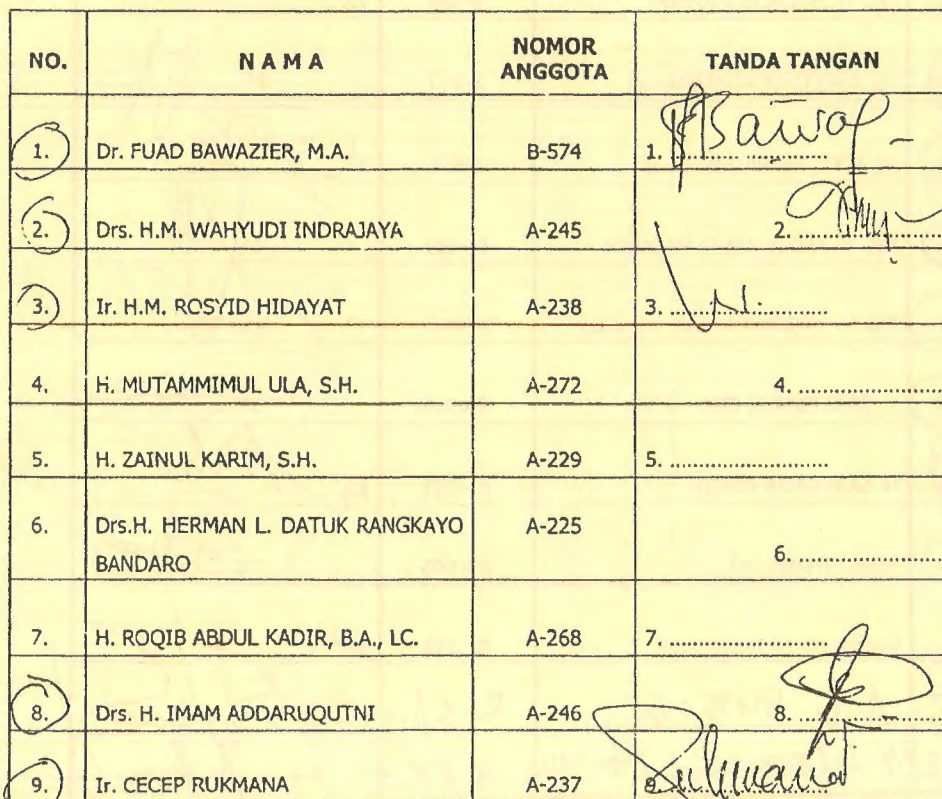 NO. N A M A NOMOR ANGGOTA TANDA TANGAN
1. Dr. FUAD BAWAZIER, M.A. B-574 1. ....................
2. Drs. H.M. WAHYUDI INDRAJAYA A-245 2. ....................
3. Ir. H.M. ROSYID HIDAYAT A-238 3. ....................
4. H. MUTAMMIMUL ULA, S.H. A-272 4. ....................
5. H. ZAINUL KARIM, S.H. A-229 5. ....................
6. Drs.H. HERMAN L. DATUK RANGKAYO A-225
BANDARO 6. ....................
7. H. ROQIB ABDUL KADIR, B.A., LC. A-268 7. ....................
8. Drs. H. IMAM ADDARUQUTNI A-246 8. ....................
9. Ir. CECEP RUKMANA A-237 9. ....................